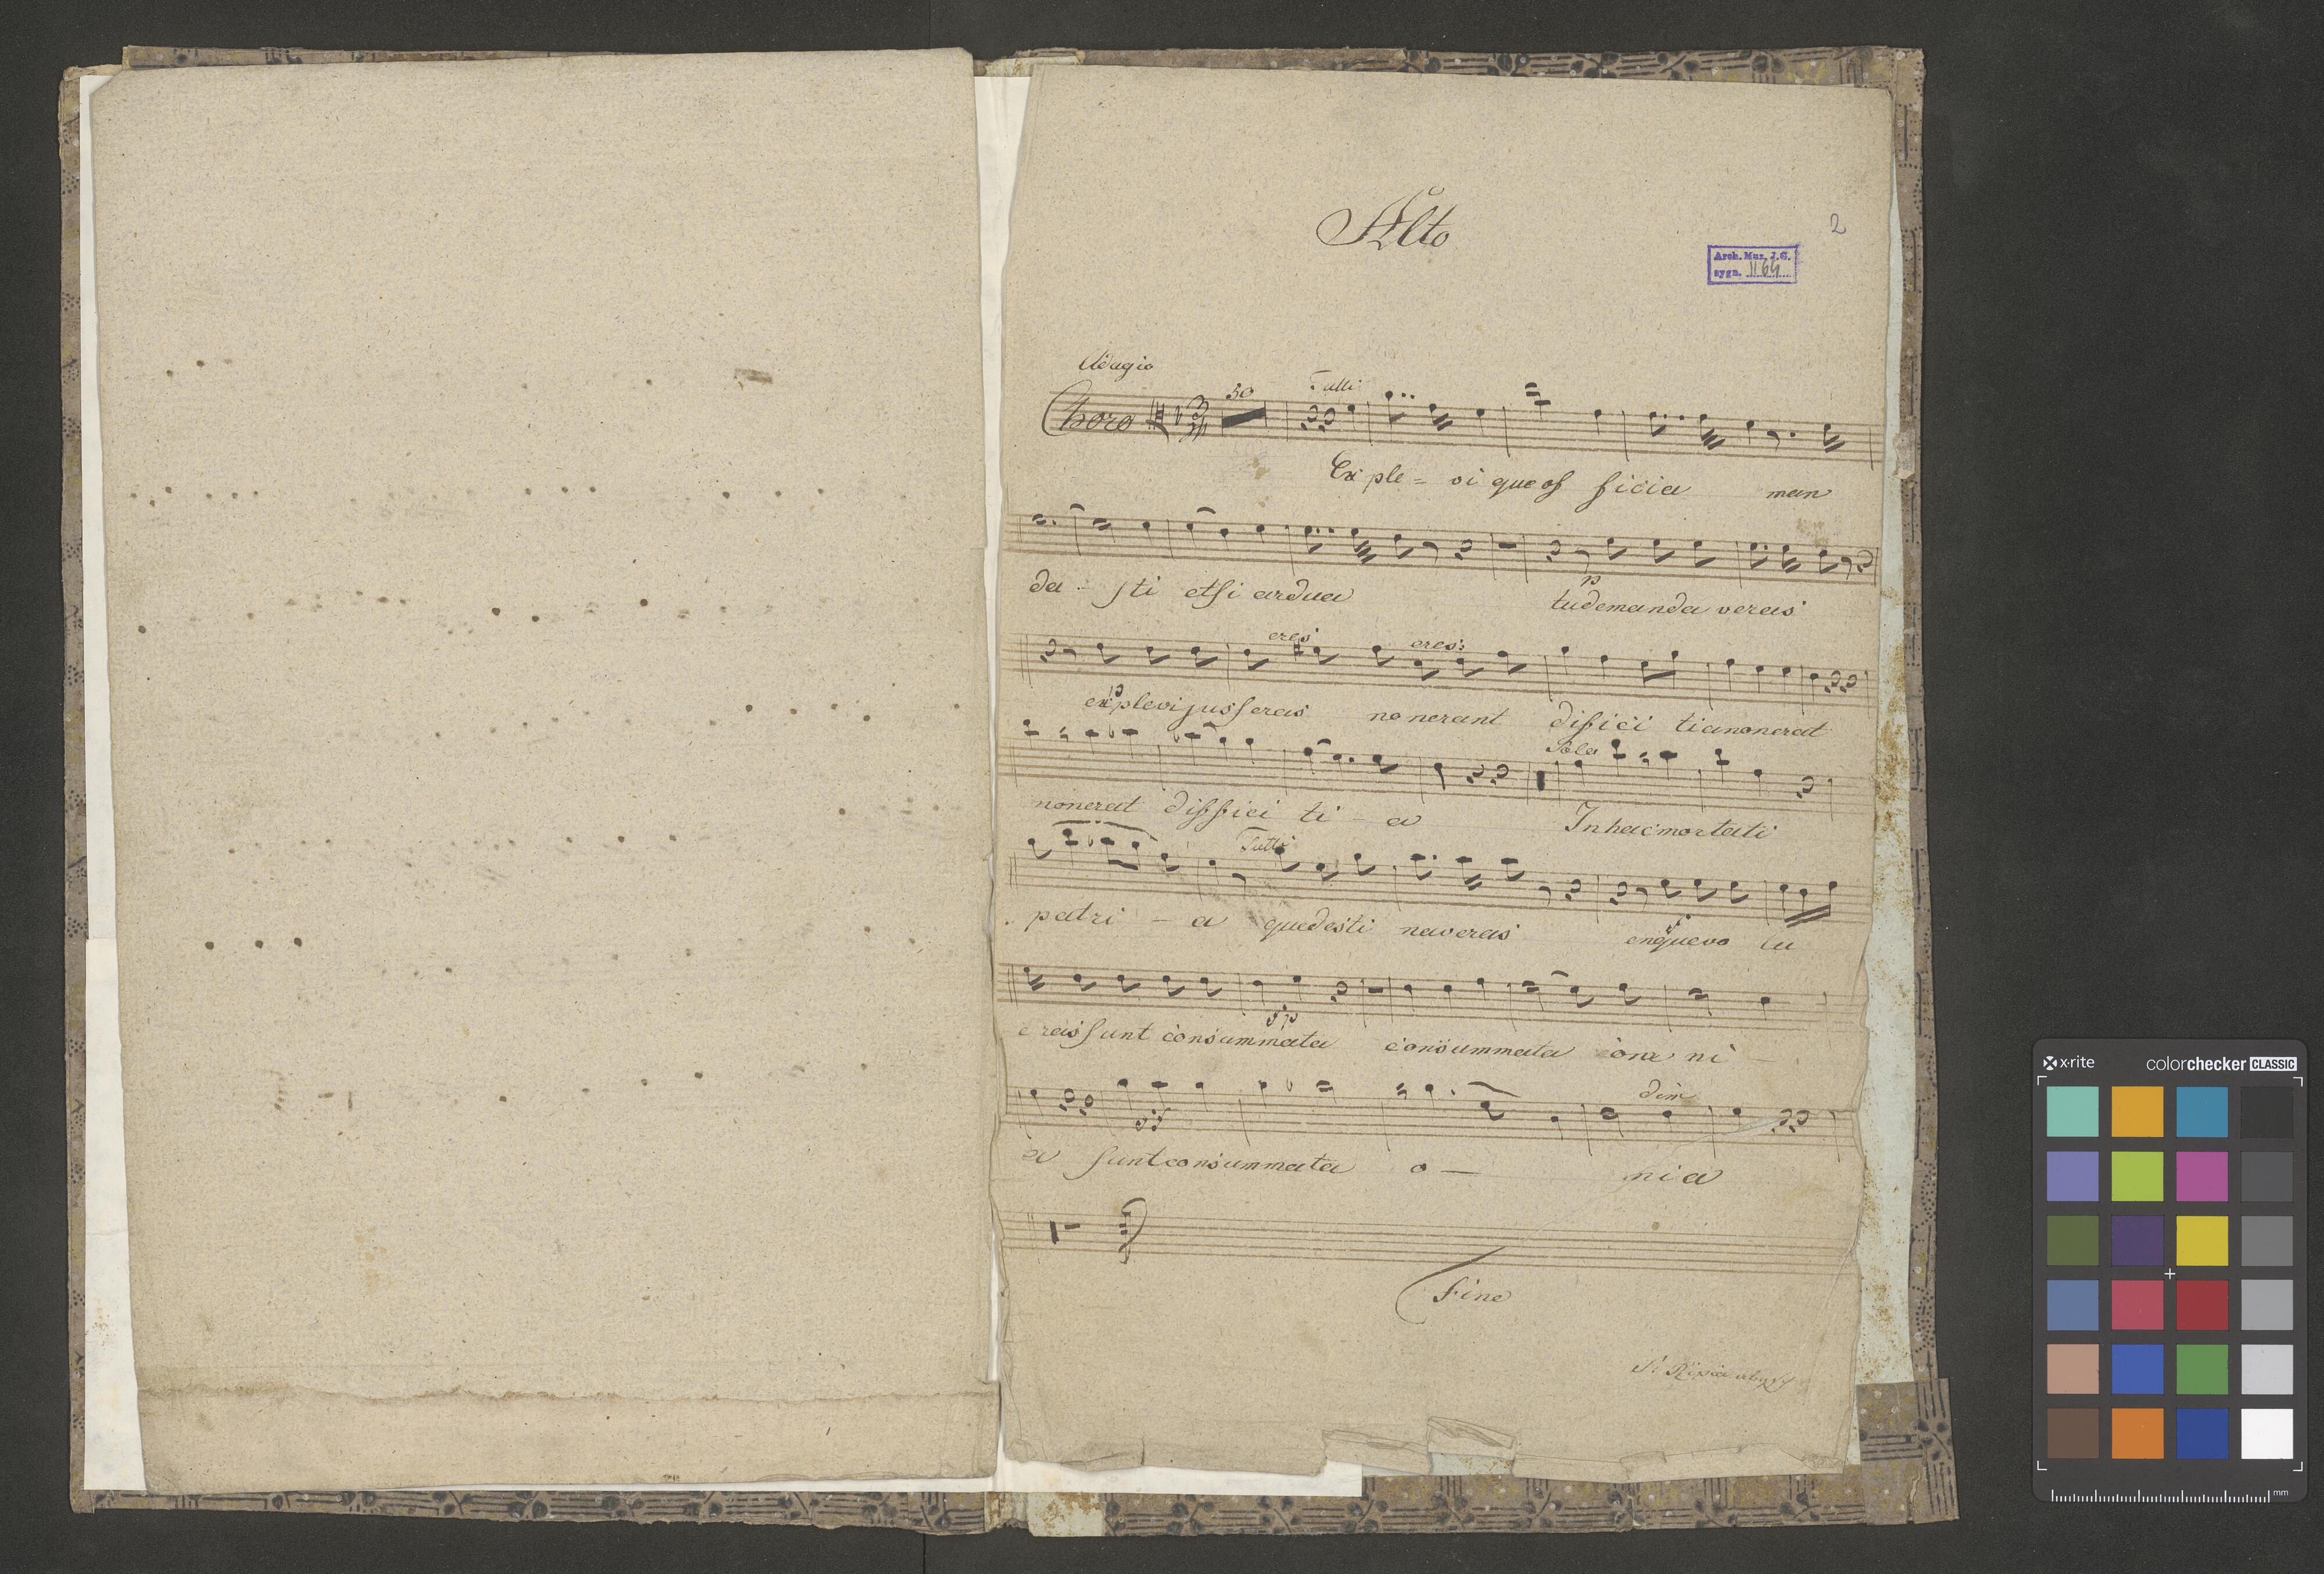 Alto
2
Arch. Muz. J. G.
sygn. II 64
Adagio
Choro 50 Tutti
Exple = vi que of ficia man
da - sti etsi ardua tu demanda veras
p
cres cres:
explevi jusseras nonerant difici tianonerat
p
Solo
nonerat diffici ti - a In hac mortati
Tutti
patri - a quedesti naveras enquevo lu
eras sunt consummata consummata om ni -
dim
a sunt consummata o - nia
Fine
x·rite colorchecker CLASSIC
mm